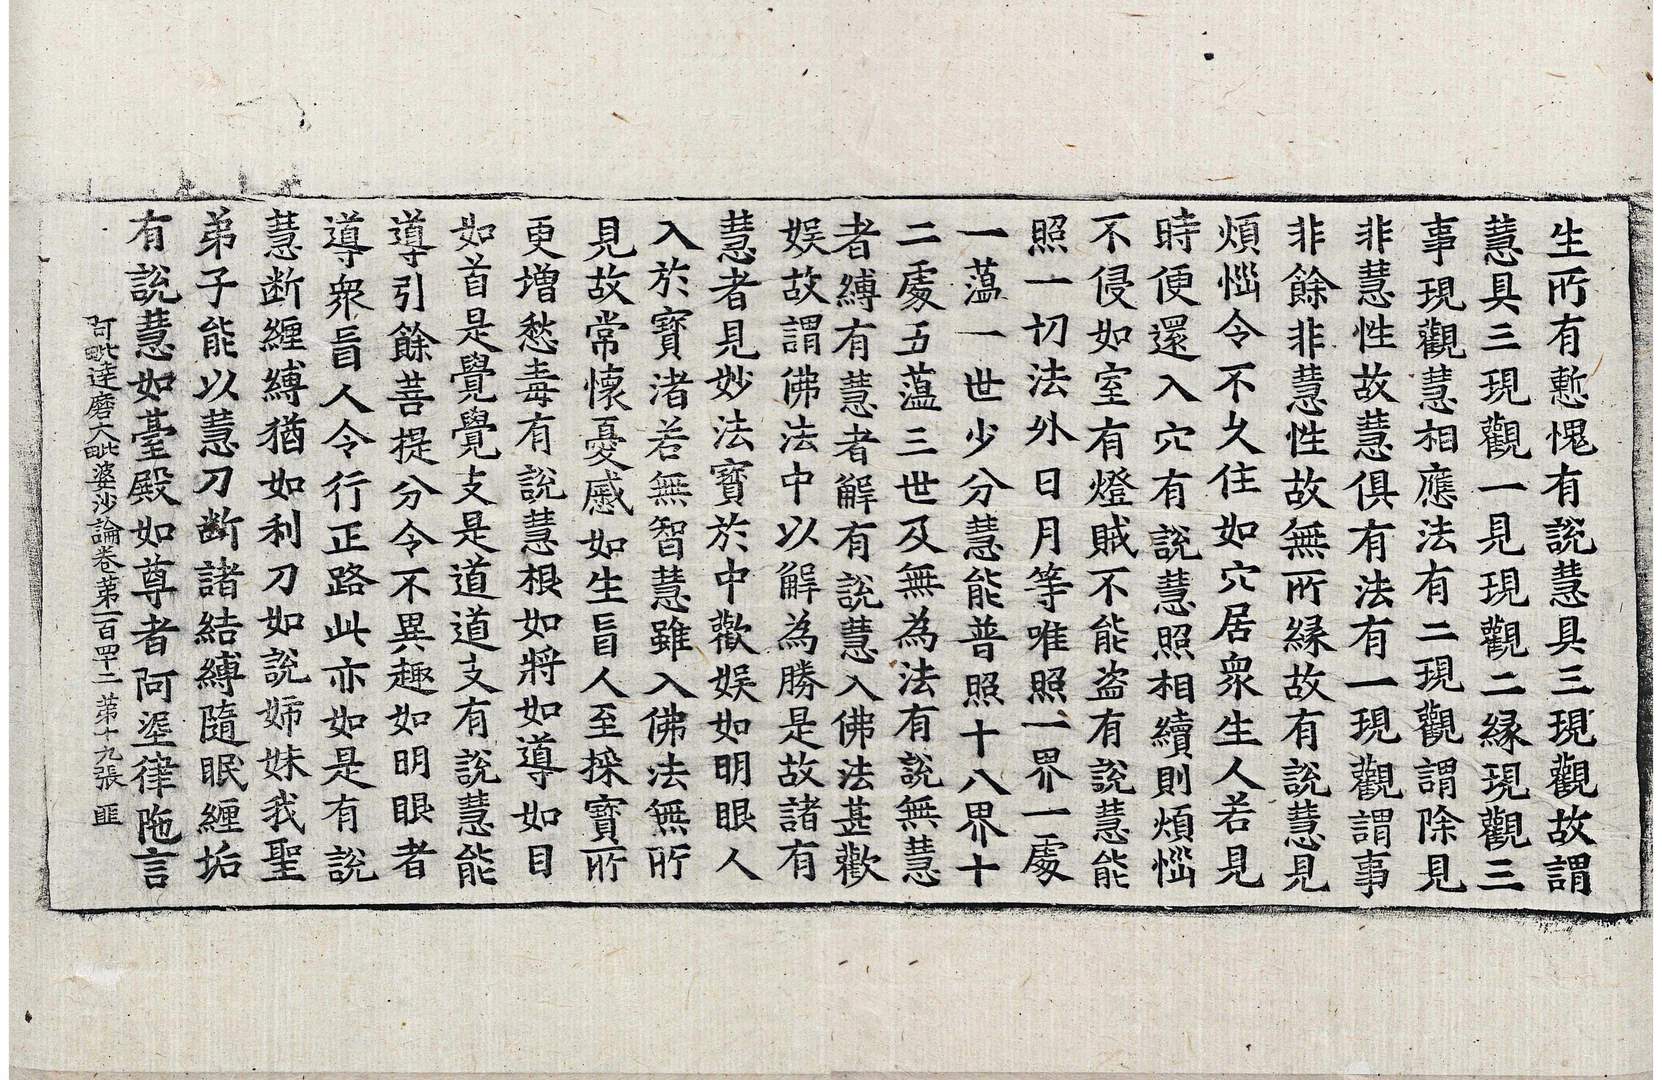 生所有慙愧有說慧具三現觀故謂
慧具三現觀一見現觀二縁現觀三
事現觀慧相應法有二現觀謂除見
非慧性故慧俱有法有一現觀謂事
非餘非慧性故無所縁故有說慧見
煩惱令不久住如穴居衆生人若見
時便還入穴有說慧照相續則煩惱
不侵如室有燈賊不能盗有說慧能
照一切法外日月等唯照一界一處
一蕰一世少分慧能普照十八界十
二處五蕰三世及無為法有說無慧
者縛有慧者解有說慧入佛法甚歡
娱故謂佛法中以解為勝是故諸有
慧者見妙法寶於中歡娱如明眼人
入於寶渚若無智慧雖入佛法無所
見故常懷憂慼如生盲人至採寶所
更増愁毒有說慧根如將如導如目
如首是覺覺支是道道支有說慧能
導引餘菩提分令不異趣如明眼者
導衆盲人令行正路此亦如是有說
慧断纒縛猶如利刀如說姉妹我聖
弟子能以慧刀断諸結縛隨眠纒垢
有說慧如臺殿如尊者阿埿律陁言
阿毗達磨大毗婆沙論卷第一百四十二 第十九張 匪